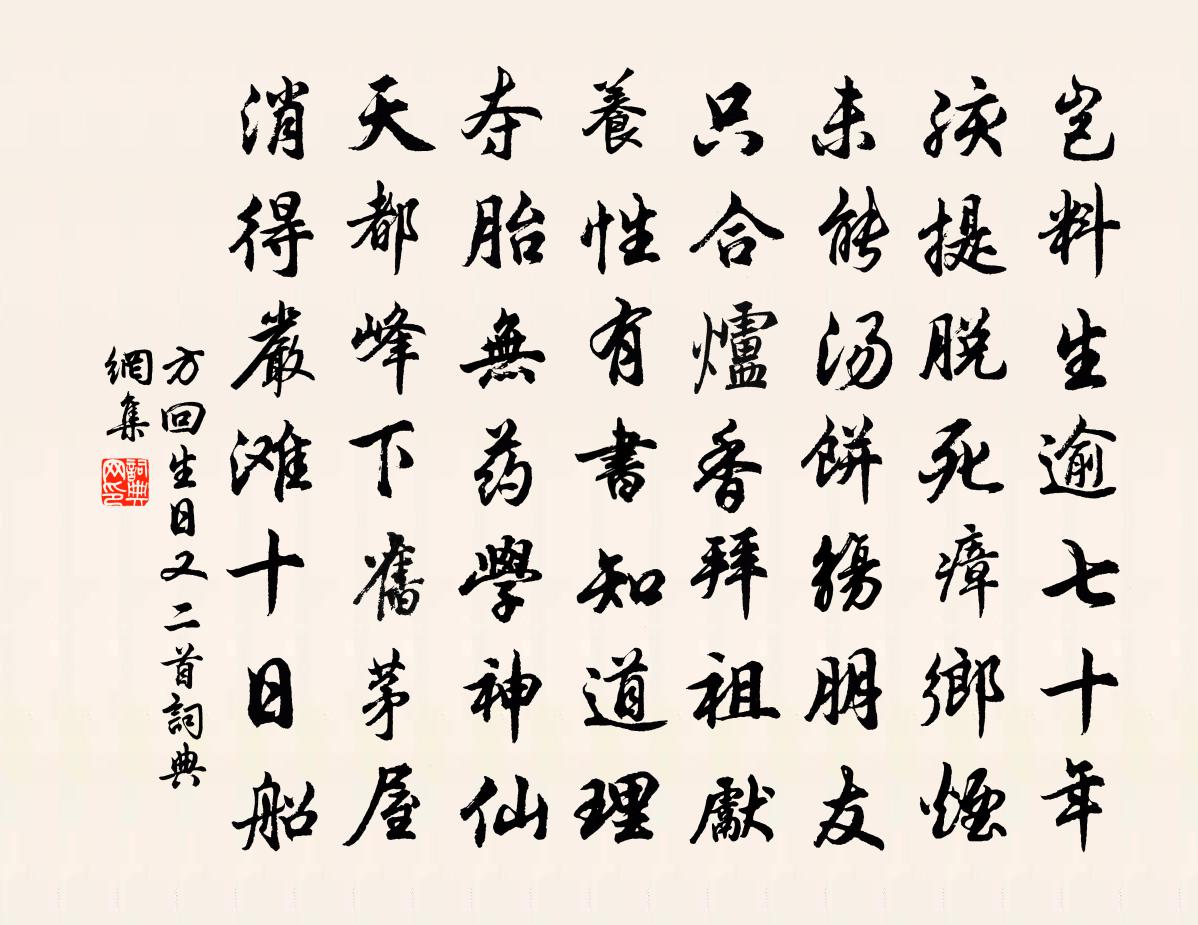 岂料生逾七十年
孩提脱死瘴鄉煙
未能汤餅觴朋友
只合爐香拜祖獻
養性有書知道理
夺胎無药學神仙
天都峰下舊茅屋
消得嚴滩十日船
方回生日又二首詞典
網集
詞典网印